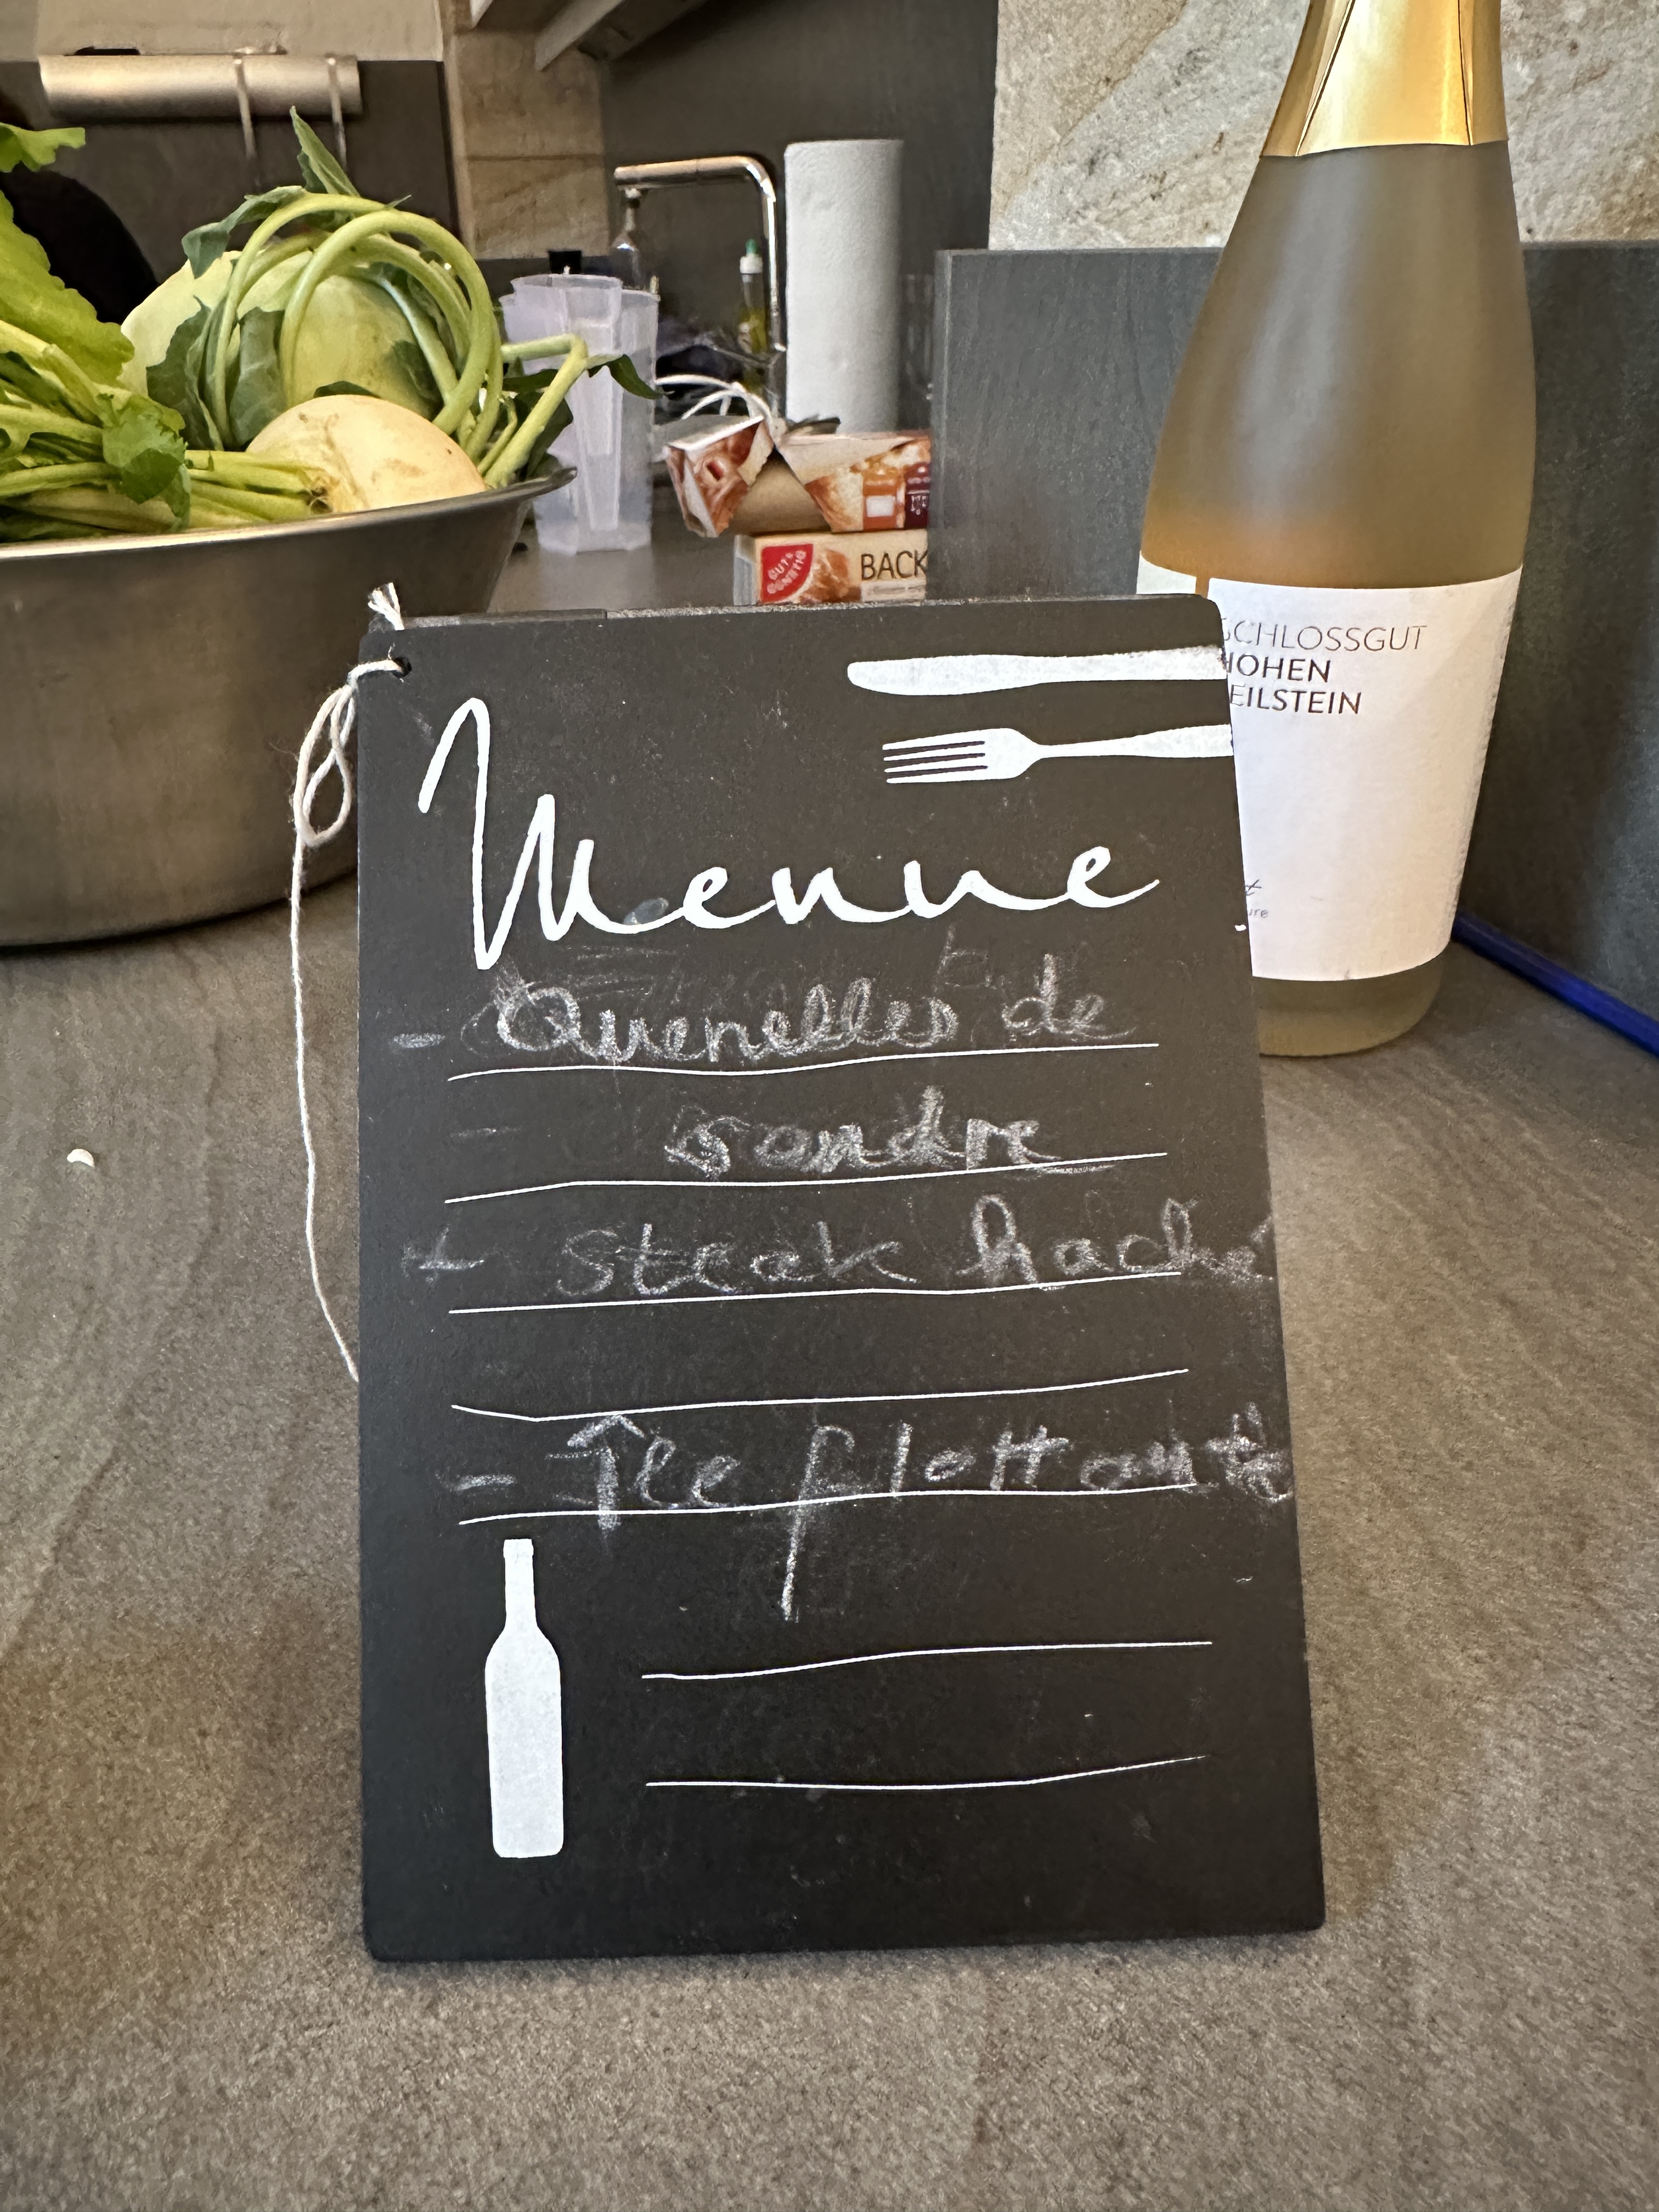 GUT& GÜNSTIG
BACK
SCHLOSSGUT
HOHEN
BEILSTEIN
Menue
- Quenelles de
sandre
- Steak haché
- Île flottante